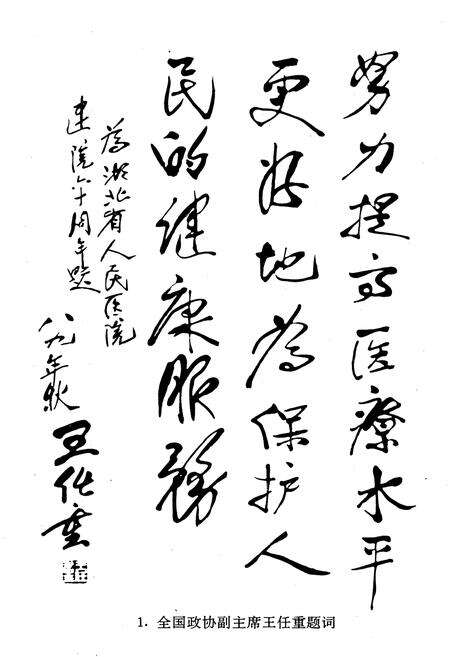 努力提高医疗水平
更好地为保护人
民的健康服务
为湖北省人民医院
建院六十周年题
八九年秋
王任重
1. 全国政协副主席王任重题词